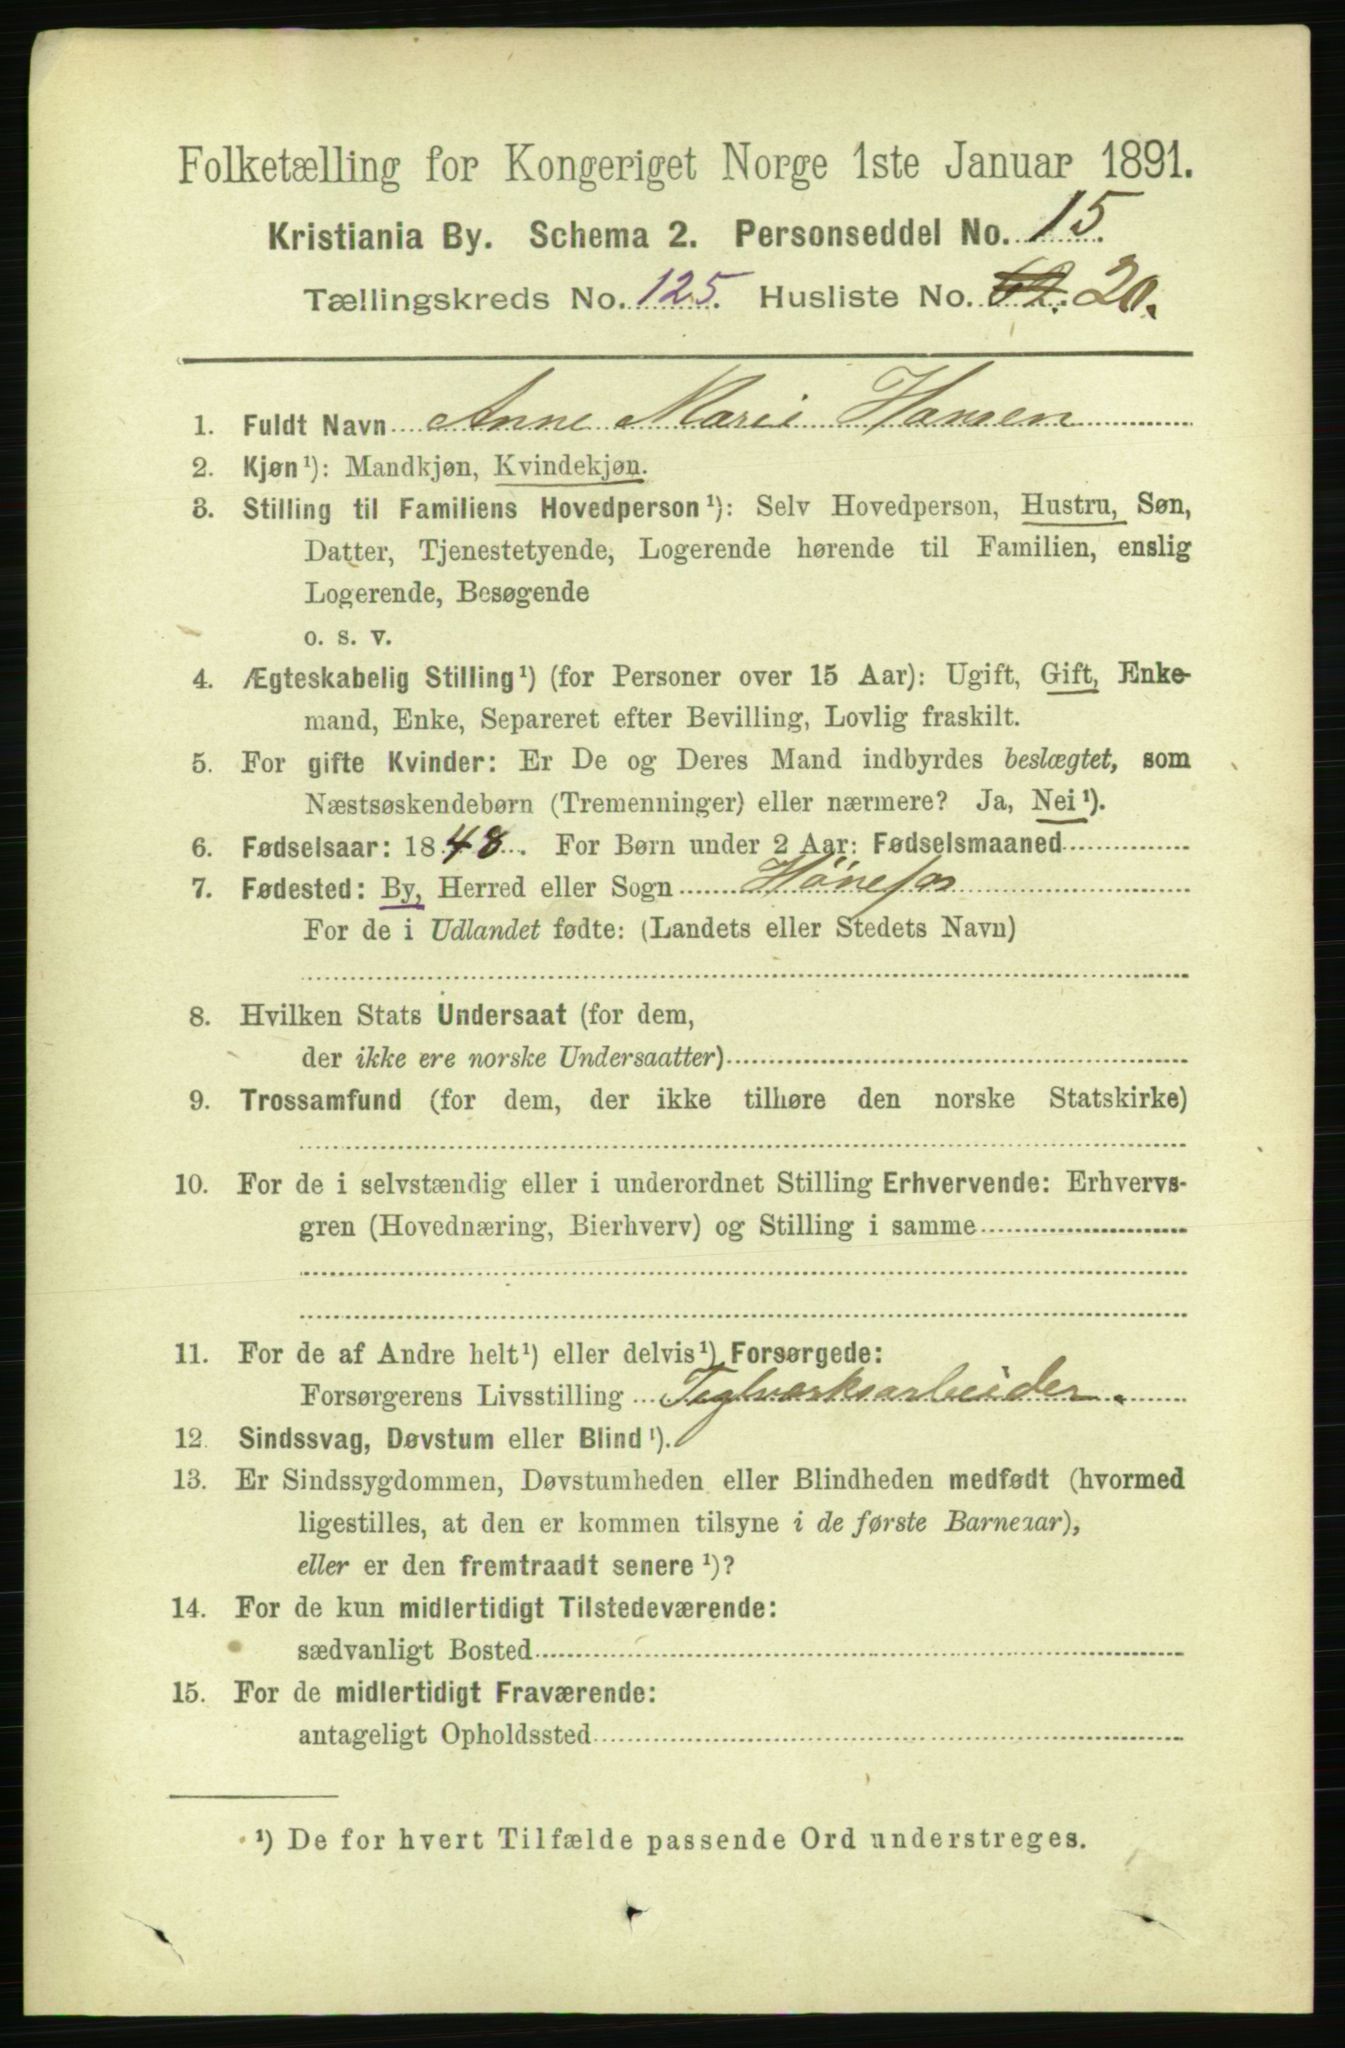 Folketælling for Kongeriget Norge 1ste Januar 1891.
Kristiania By. Schema 2. Personseddel No. 15.
Tællingskreds No. 125. Husliste No. 20.
1. Fuldt Navn Anne Marie Hansen
2. Kjøn¹): Mandkjøn, Kvindekjøn.
3. Stilling til Familiens Hovedperson¹): Selv Hovedperson, Hustru, Søn,
Datter, Tjenestetyende, Logerende hørende til Familien, enslig
Logerende, Besøgende
o. s. v.
4. Ægteskabelig Stilling¹) (for Personer over 15 Aar): Ugift, Gift, Enke-
mand, Enke, Separeret efter Bevilling, Lovlig fraskilt.
5. For gifte Kvinder: Er De og Deres Mand indbyrdes beslægtet, som
Næstsøskendebørn (Tremenninger) eller nærmere? Ja, Nei¹).
6. Fødselsaar: 1848. For Børn under 2 Aar: Fødselsmaaned
7. Fødested: By, Herred eller Sogn Hönefos
For de i Udlandet fødte: (Landets eller Stedets Navn)
8. Hvilken Stats Undersaat (for dem,
der ikke ere norske Undersaatter)
9. Trossamfund (for dem, der ikke tilhøre den norske Statskirke)
10. For de i selvstændig eller i underordnet Stilling Erhvervende: Erhvervs-
gren (Hovednæring, Bierhverv) og Stilling i samme
11. For de af Andre helt¹) eller delvis¹) Forsørgede:
Forsørgerens Livsstilling Teglværksarbeider.
12. Sindssvag, Døvstum eller Blind¹).
13. Er Sindssygdommen, Døvstumheden eller Blindheden medfødt (hvormed
ligestilles, at den er kommen tilsyne i de første Barneaar),
eller er den fremtraadt senere¹)?
14. For de kun midlertidigt Tilstedeværende:
sædvanligt Bosted
15. For de midlertidigt Fraværende:
antageligt Opholdssted
¹) De for hvert Tilfælde passende Ord understreges.